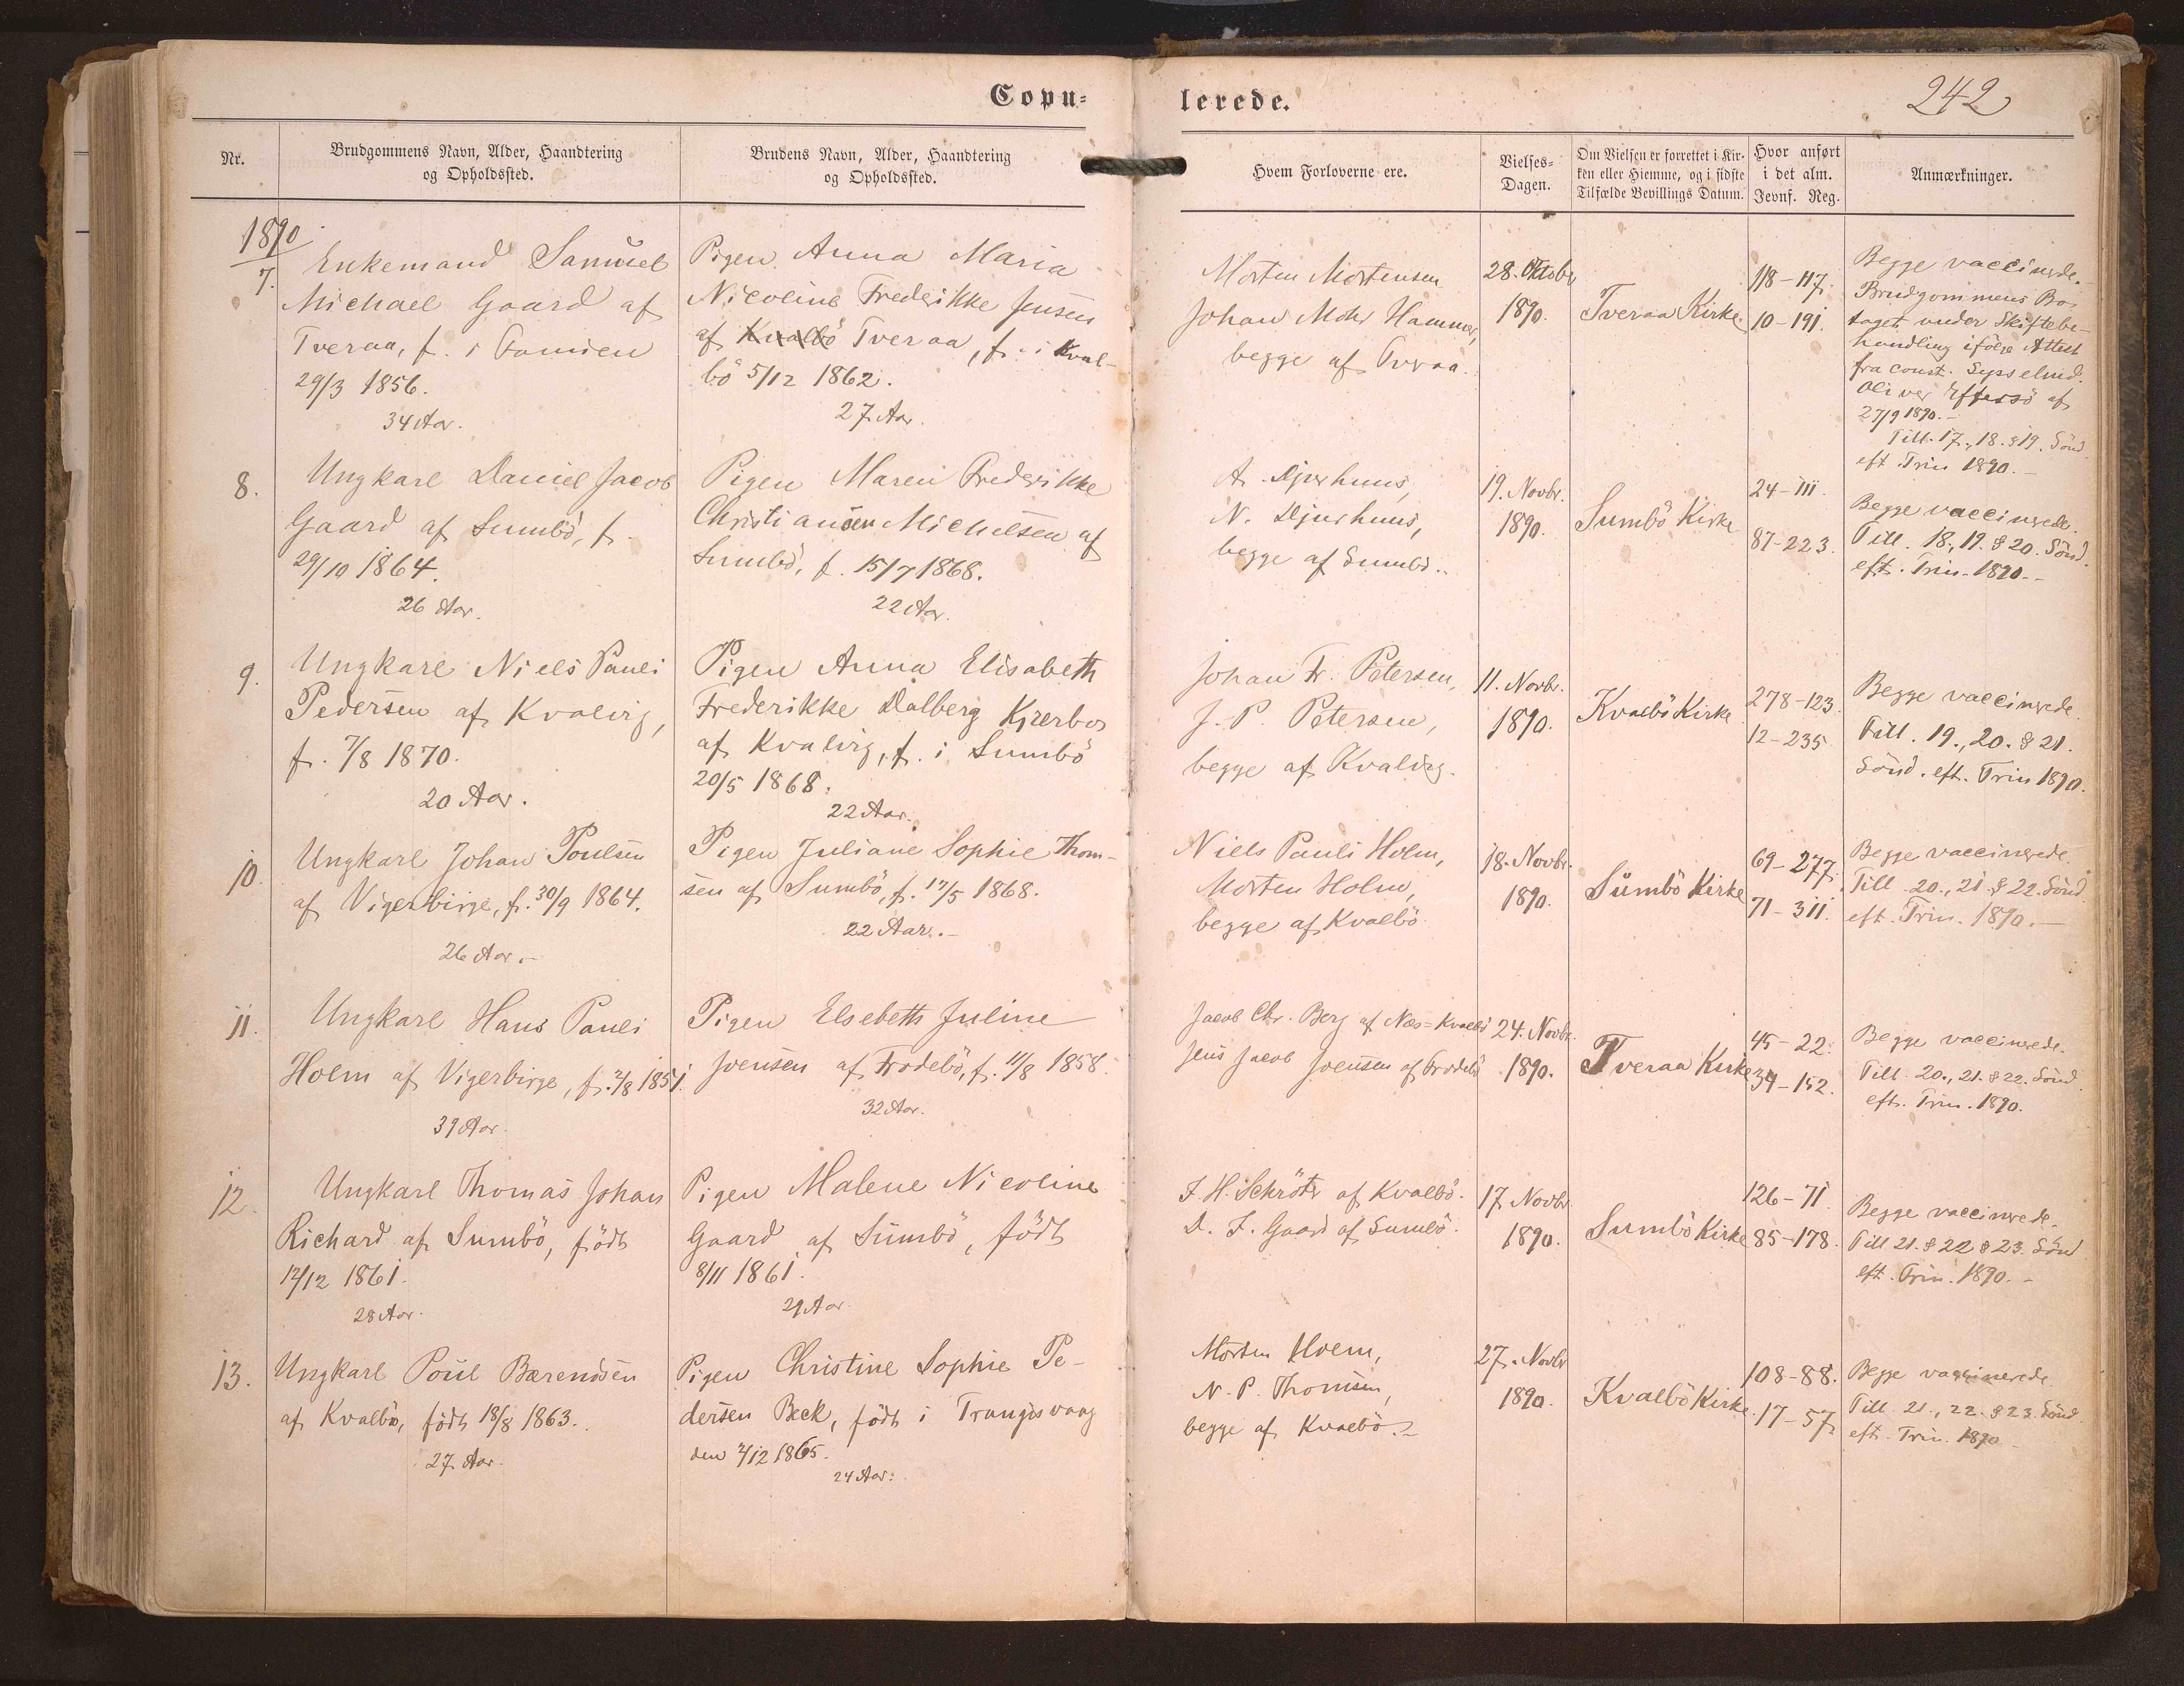 Copu-
lerede.
242
Nr.
Brudgommens Navn, Alder, Haandtering
og Opholdssted.
Brudens Navn, Alder, Haandtering
og Opholdssted.
Hvem Forloverne ere.
Vielses-
Dagen.
Om Vielsen er forrettet i Kir-
ken eller Hiemme, og i sidste
Tilfælde Bevillings Datum.
Hvor anført
i det alm.
Jevnf. Reg.
Anmærkninger.
1890
7.
Enkemand Samuel
Michael Gaard af
Tveraa, f. i Famien
29/3 1856.
34 Aar.
Pigen Anna Maria
Nicoline Frederikke Jensen
af Kvalbö Tveraa, f. i Kval-
bö 5/12 1862.
27 Aar
Morten Mortensen
Johan Mohr Hammer,
begge af Tveraa.
28. Oktobr
1890.
Tveraa Kirke
118-117.
10-191.
Begge vaccinerede.
Brudgommens Bo
taget under Skiftebe-
handling ifölge Attest
fra const. Sysselmd.
Oliver Effersö af
27/9 1890.-
Till. 17., 18. & 19. Sönd.
eft. Trin 1890.-
8.
Ungkarl Daniel Jacob
Gaard af Sumbö, f.
29/10 1864.
26 Aar.
Pigen Maren Frederikke
Christiansen Michelsen af
Sumbö, f. 15/7 1868.
22 Aar.
A. Djurhuus,
N. Djurhuus,
begge af Sumbö.
19. Novbr.
1890.
Sumbö Kirke
24-111.
87-223.
Begge vaccinerede.
Till. 18., 19. & 20. Sönd.
eft. Trin. 1890.-
9.
Ungkarl Niels Pauli
Pedersen af Kvalvig,
f. 7/8 1870.
20 Aar.
Pigen Anna Elisabeth
Frederikke Dalberg Kjærbo
af Kvalvig, f. i Sumbö
20/5 1868.
22 Aar.
Johan Fr. Petersen,
J. P. Petersen,
begge af Kvalvig.
11. Novbr.
1890.
Kvalbö Kirke
278-123.
12-235
Begge vaccinerede
Till. 19., 20. & 21.
Sönd. eft. Trin 1890.
10.
Ungkarl Johan Poulsen
af Vigerbirge, f. 30/9 1864.
26 Aar.-
Pigen Juliane Sophie Thom-
sen af Sumbö, f. 17/5 1868.
22 Aar.-
Niels Pauli Holm,
Morten Holm,
begge af Kvalbö
18. Novbr.
1890.
Sumbö Kirke
69-277.
71-311.
Begge vaccinerede.
Till. 20., 21. & 22. Sönd
eft. Trin. 1890.-
11.
Ungkarl Hans Pauli
Holm af Vigerbirge, f. 2/8 1851.
39 Aar.
Pigen Elsebeth Juline
Joensen af Frodebö, f. 11/8 1858.
32 Aar.
Jacob Chr. Berg af Næs-Kvalbö
Jens Jacob Joensen af Frodebö
24. Novbr.
1890.
Tveraa Kirke
45-22.
34-152.
Begge vaccinerede.
Till. 20., 21. & 22. Sönd.
eft. Trin. 1890.
12.
Ungkarl Thomas Johan
Richard af Sumbö, födt
12/12 1861.
28 Aar.
Pigen Malene Nicoline
Gaard af Sumbö, födt
8/11 1861.
29 Aar
J. H. Schröter af Kvalbö.
D. J. Gaard af Sumbö.
17. Novbr.
1890.
Sumbö Kirke
126-71
85-178.
Begge vaccinerede.
Till 21. & 22 & 23. Sönd
eft. Trin. 1890.-
13.
Ungkarl Poul Bærendsen
af Kvalbö, födt 18/8 1863.
27 Aar
Pigen Christine Sophie Pe-
dersen Beck, födt i Trangisvaag
1865.
24 Aar.
Morten Holm,
N. P. Thomsen,
begge af Kvalbö.-
27. Novbr
1890.
Kvalbö Kirke
108-88.
17-57.
Begge vaccinerede
Till. 21., 22. & 23. Sönd
eft. Trin. 1890